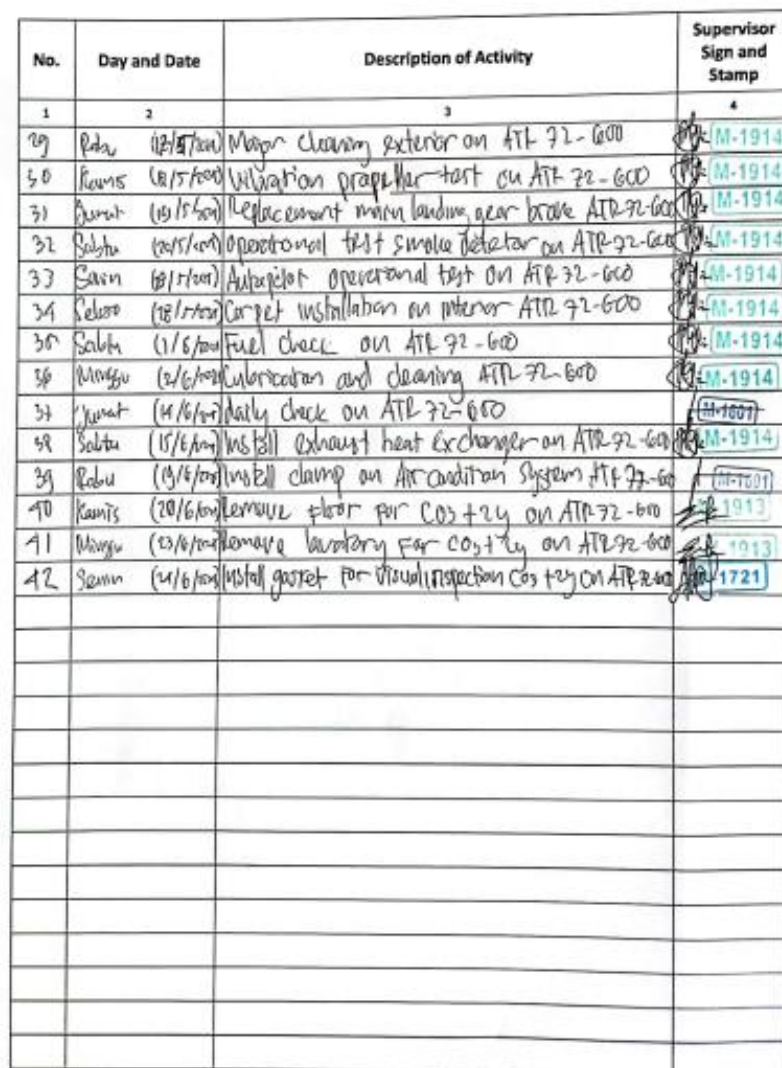 No. Day and Date Description of Activity Supervisor Sign and Stamp
1 2 3 4
29 Rabu Major cleaning exterior on ATR 72-600 M-1914
30 Kamis propeller test on ATR 72-600 M-1914
31 Jumat Replacement main landing gear brake ATR 72-600 M-1914
32 Sabtu operational test smoke detector on ATR 72-600 M-1914
33 Senin Autopilot operational test on ATR 72-600 M-1914
34 Carpet installation on interior ATR 72-600 M-1914
35 Sabtu (1/6/ Fuel check on ATR 72-600 M-1914
36 Minggu (2/6/ Lubrication and cleaning ATR 72-600 M-1914
37 Jumat (14/6/ daily check on ATR 72-600 M-1601
38 Sabtu (15/6/ Install exhaust heat exchanger on ATR 72-600 M-1914
39 Rabu (19/6/ Install clamp on Air condition System ATR 72-60 M-1601
40 Kamis (20/6/ Remove floor for on ATR 72-600 1913
41 Minggu (23/6/ Remove lavatory for on ATR 72-600 1913
42 Senin (24/6/ Install gasket for visual inspection on ATR 72-600 1721